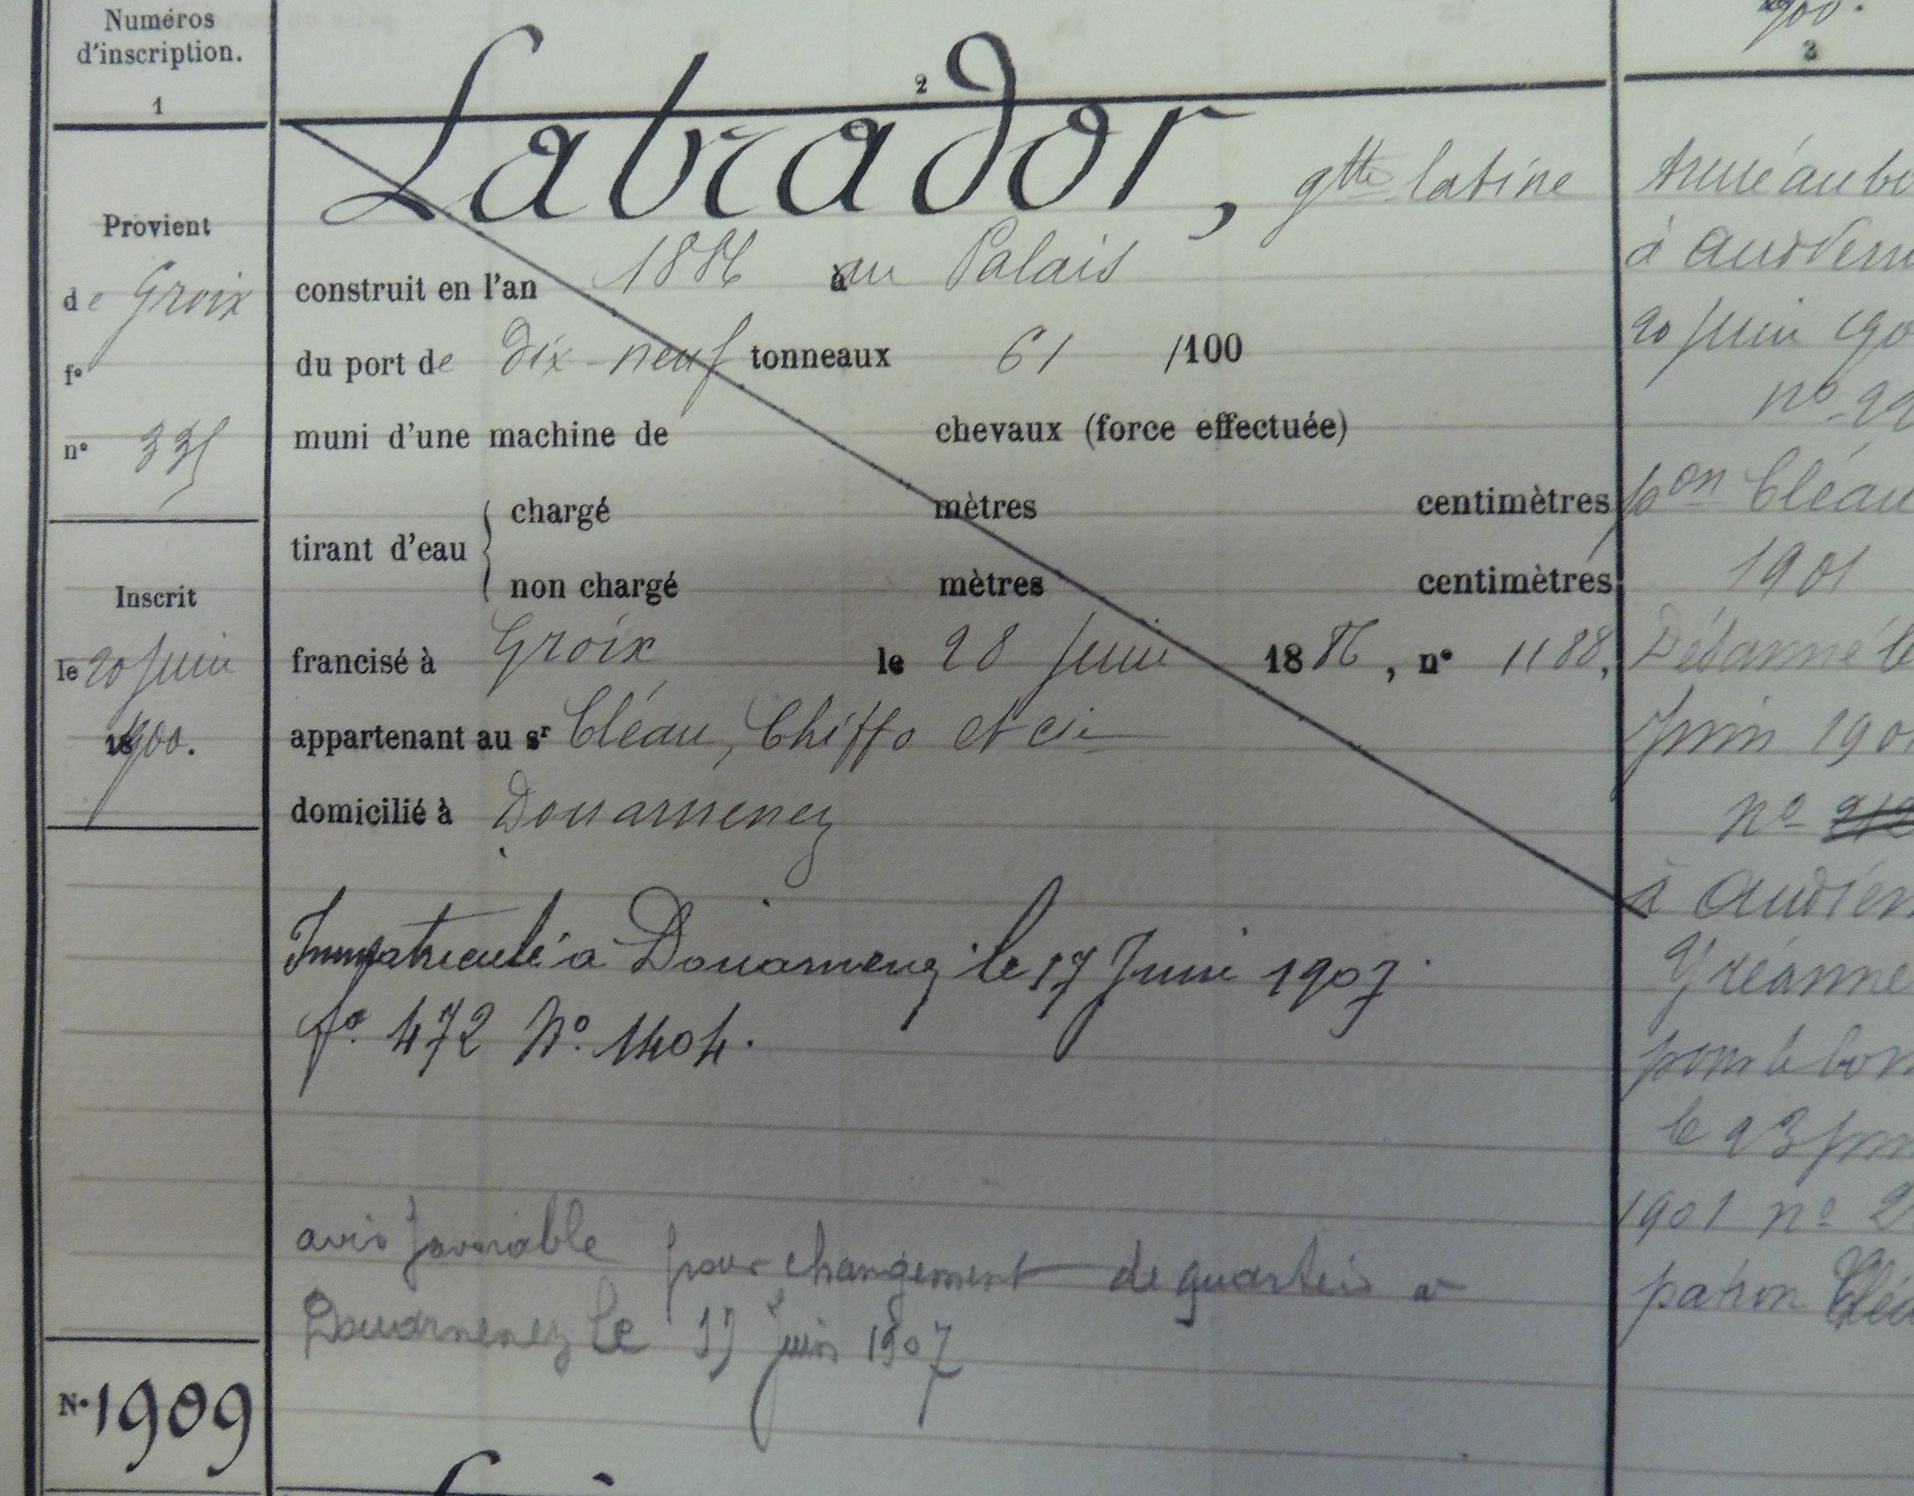 Numéros
d'inscription.
1
Provient
de Groix
fo
no 335
Inscrit
le 20 juin
1900.
No 1909
2
Labrador, gtte latine
construit en l'an 1886 au Palais
du port de Dix-neuf tonneaux 61 /100
muni d'une machine de chevaux (force effectuée)
tirant d'eau
chargé mètres centimètres
non chargé mètres centimètres
francisé à Groix le 28 Juin 1886, no 1188,
appartenant au sr Cléau, Chiffo et cie
domicilié à Douarnenez
Immatriculé à Douarnenez le 17 Juin 1907
fo. 472 No. 1404.
avis favorable pour changement de quartier à
Douarnenez le 17 juin 1907
900.
3
Armé au bo
à Audiern
20 juin 190
no 22
pon Cléau
1901
Désarmé le
Juin 190
no
à Audiern
Réarmé
pour le bor
le 23 jui
1901 no 2
patron Cléa